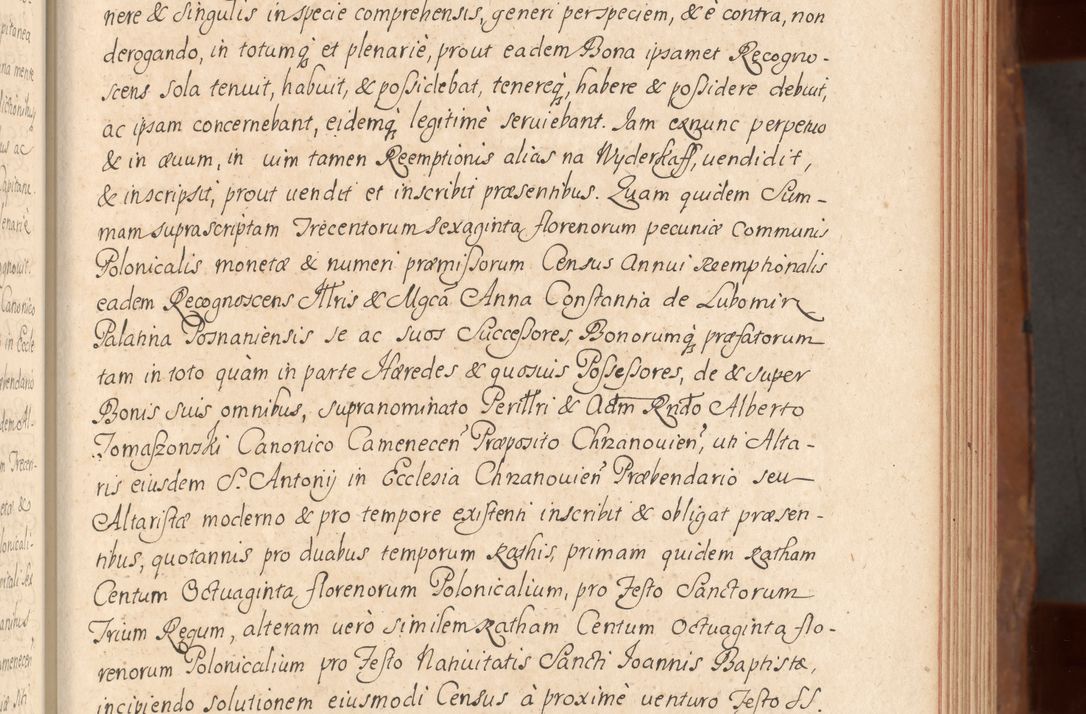 nere & Singulis in specie comprehensis, generi per speciem, & è contra, non
derogando, in totumq; et plenariè, prout eadem Bona ipsamet Recogno-
scens sola tenuit, habuit, & possidebat, tenereq;, habere & possidere debuit,
ac ipsam concernebant, eidemq; legitimè seruiebant. Iam exnunc perpetuo
& in æuum, in uim tamen Reemptionis alias na Wyderkaff, uendidit,
& inscripsit, prout uendit et inscribit præsentibus. Quam quidem Sum-
mam suprascriptam Trecentorum Sexaginta florenorum pecuniæ Communis
Polonicalis monetæ & numeri præmissorum Census Annui Reemptionalis
eadem Recognoscens Illris & Mgca Anna Constantia de Lubomirz
Palatina Posnaniensis se ac suos Successores, Bonorumq; præfatorum
tam in toto quàm in parte Hæredes & quosuis Possessores, de & super
Bonis suis omnibus, supranominato Perillri & Adm Rndo Alberto
Tomaszonski Canonico Camenecen Præposito Chrzanouien, uti Alta-
ris eiusdem S. Antonij in Ecclesia Chrzanouien Præbendario seu
Altaristæ moderno & pro tempore existenti inscribit & obligat præsen-
tibus, quotannis pro duabus temporum Rathis, primam quidem Ratham
Centum Octuaginta florenorum Polonicalium, pro Festo Sanctorum
Trium Regum, alteram uerò similem Ratham Centum Octuaginta flo-
renorum Polonicalium pro Festo Natiuitatis Sancti Ioannis Baptistæ,
incipiendo solutionem eiusmodi Census à proximè uenturo Festo SS.